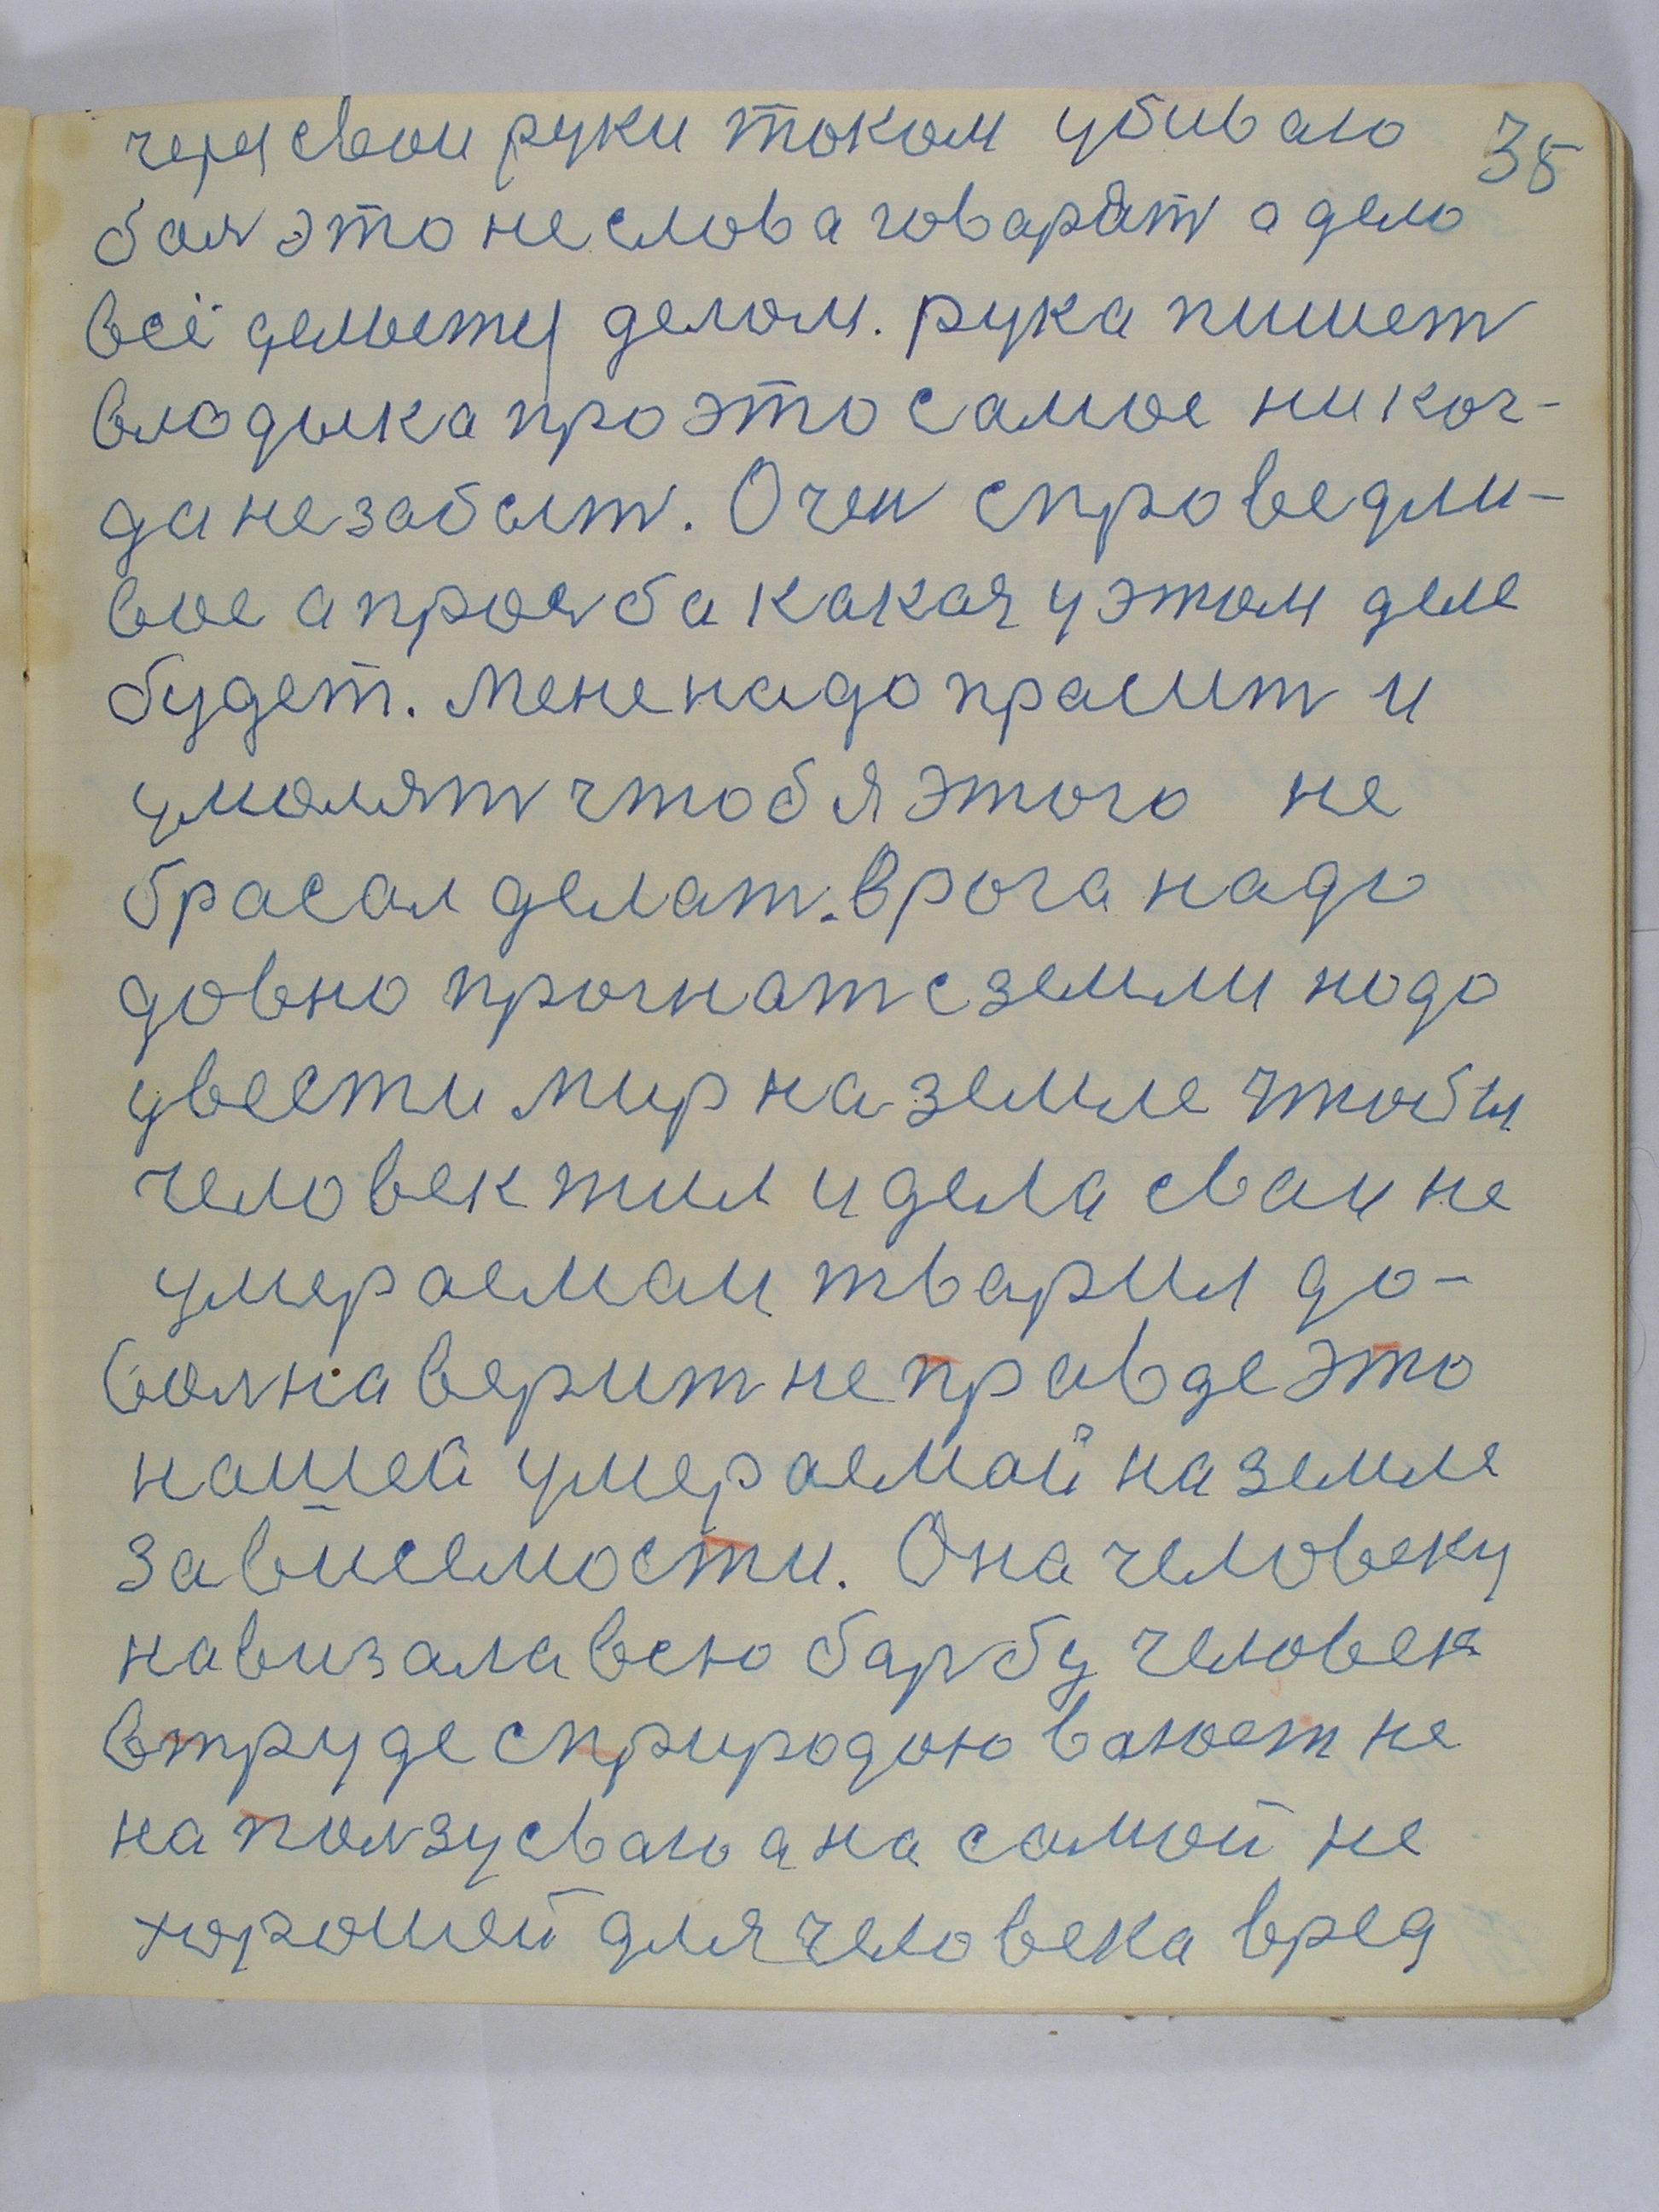 через свои руки током убиваю 35
бол это не слова говарат а дело
всё делается делом. рука пишет
владыка про это самое никог-
да незабыт. Очен справедли-
вое а прозба какая у этом деле
будет. Мене надо прасит и
умолят чтоб я этого не
брасал делат. врага надо
довно прогнат с земли надо
увести мир на земле чтобы
человек жил и дела сваи не
умераемаи тварил до-
волна верит не правде это
нашей умераемаи на земле
зависемости. Она человеку
навизала всю барбу человек
в труде с природою ваюет не
на ползу сваю а на самой не
хорошей для человека вред